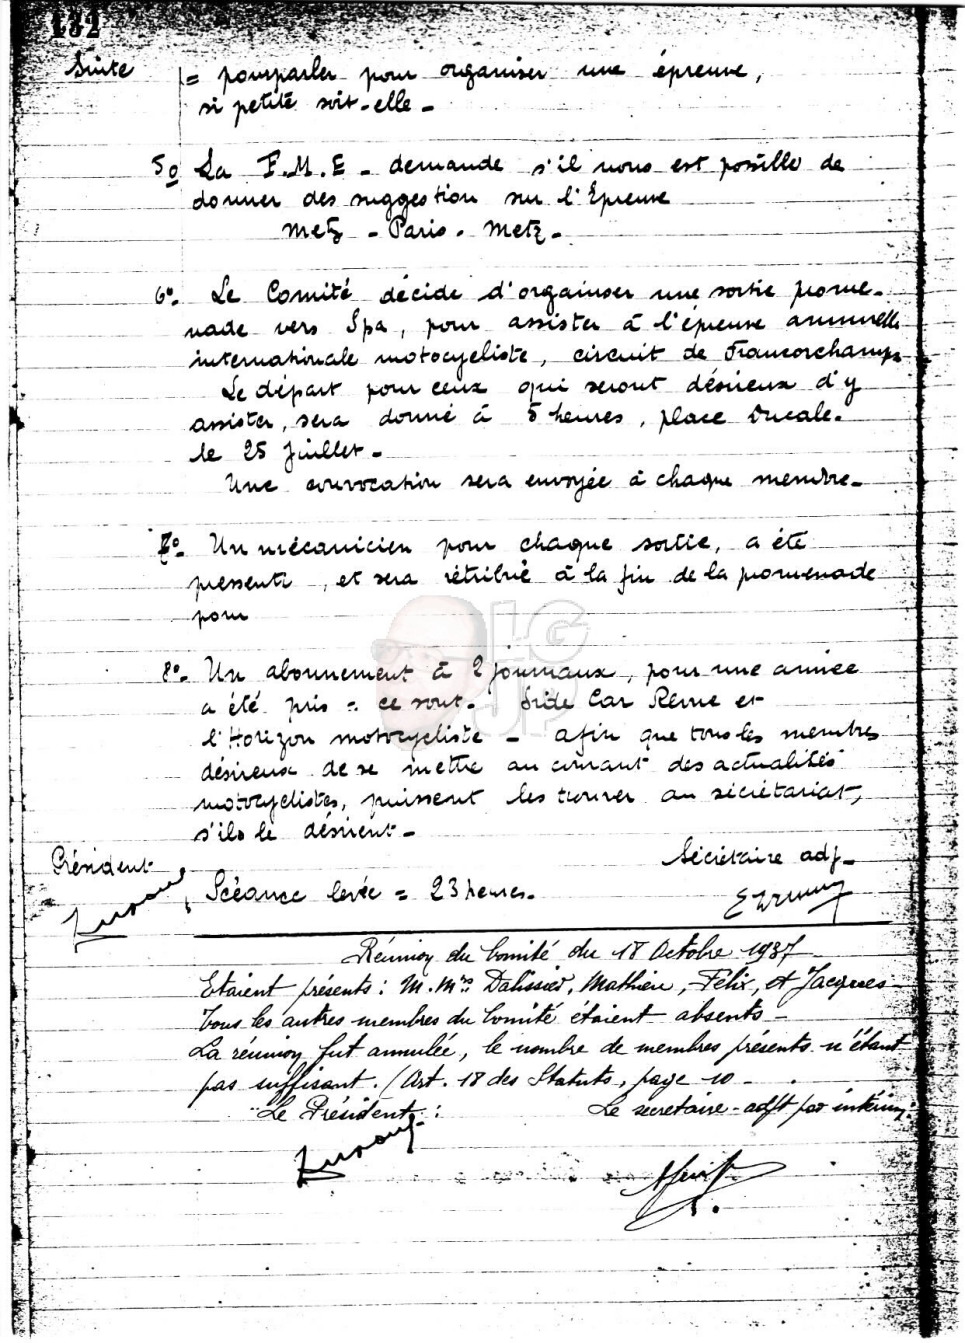 132
Suite = pourparler pour organiser une épreuve,
si petite soit-elle -
5º La F.M.E - demande s'il nous est possible de
donner des suggestion sur l'Epreuve
Metz - Paris - Metz -
6º- Le Comité décide d'organiser une sortie prome-
nade vers Spa, pour assister à l'épreuve annuelle
internationale motocycliste, circuit de Francorchamps
Le départ pour ceux qui seront désireux d'y
assister, sera donné à 5 heures, place Ducale.
le 25 Juillet -
Une convocation sera envoyée à chaque membre -
7º- Un mécanicien pour chaque sortie, a été
pressenti, et sera rétribué à la fin de la promenade
pour
8º- Un abonnement à 2 journaux, pour une année
a été pris = ce sont - Side Car Revue et
l'Horizon motocycliste - afin que tous les membres
désireux de se mettre au courant des actualités
motocyclistes, puissent les trouver au sécrétariat,
s'ils le désirent -
Président
Sécrétaire adj -
Scéance levée = 23 heures -
Réunion du Comité du 18 Octobre 1937
Etaient présents : M.Mrs Dalissier, Mathieu, Félix, et Jacques
Tous les autres membres du Comité étaient absents -
La réunion fut annulée, le nombre de membres présents n'étant
pas suffisant. (Art. 18 des Statuts, page 10 -
Le Président :
Le secretaire-adjt par intérim :
LG
JP